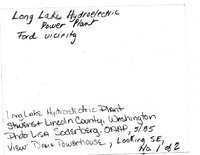 Long Lake Hydroelectric
Power Plant
Ford vicinity
Long Lake Hydroelectric Plant
Stevens & Lincoln County, Washington
Photo Lisa Soderberg, OAHP, 5/85
View Dam & Powerhouse, Looking SE,
No. 1 of 2